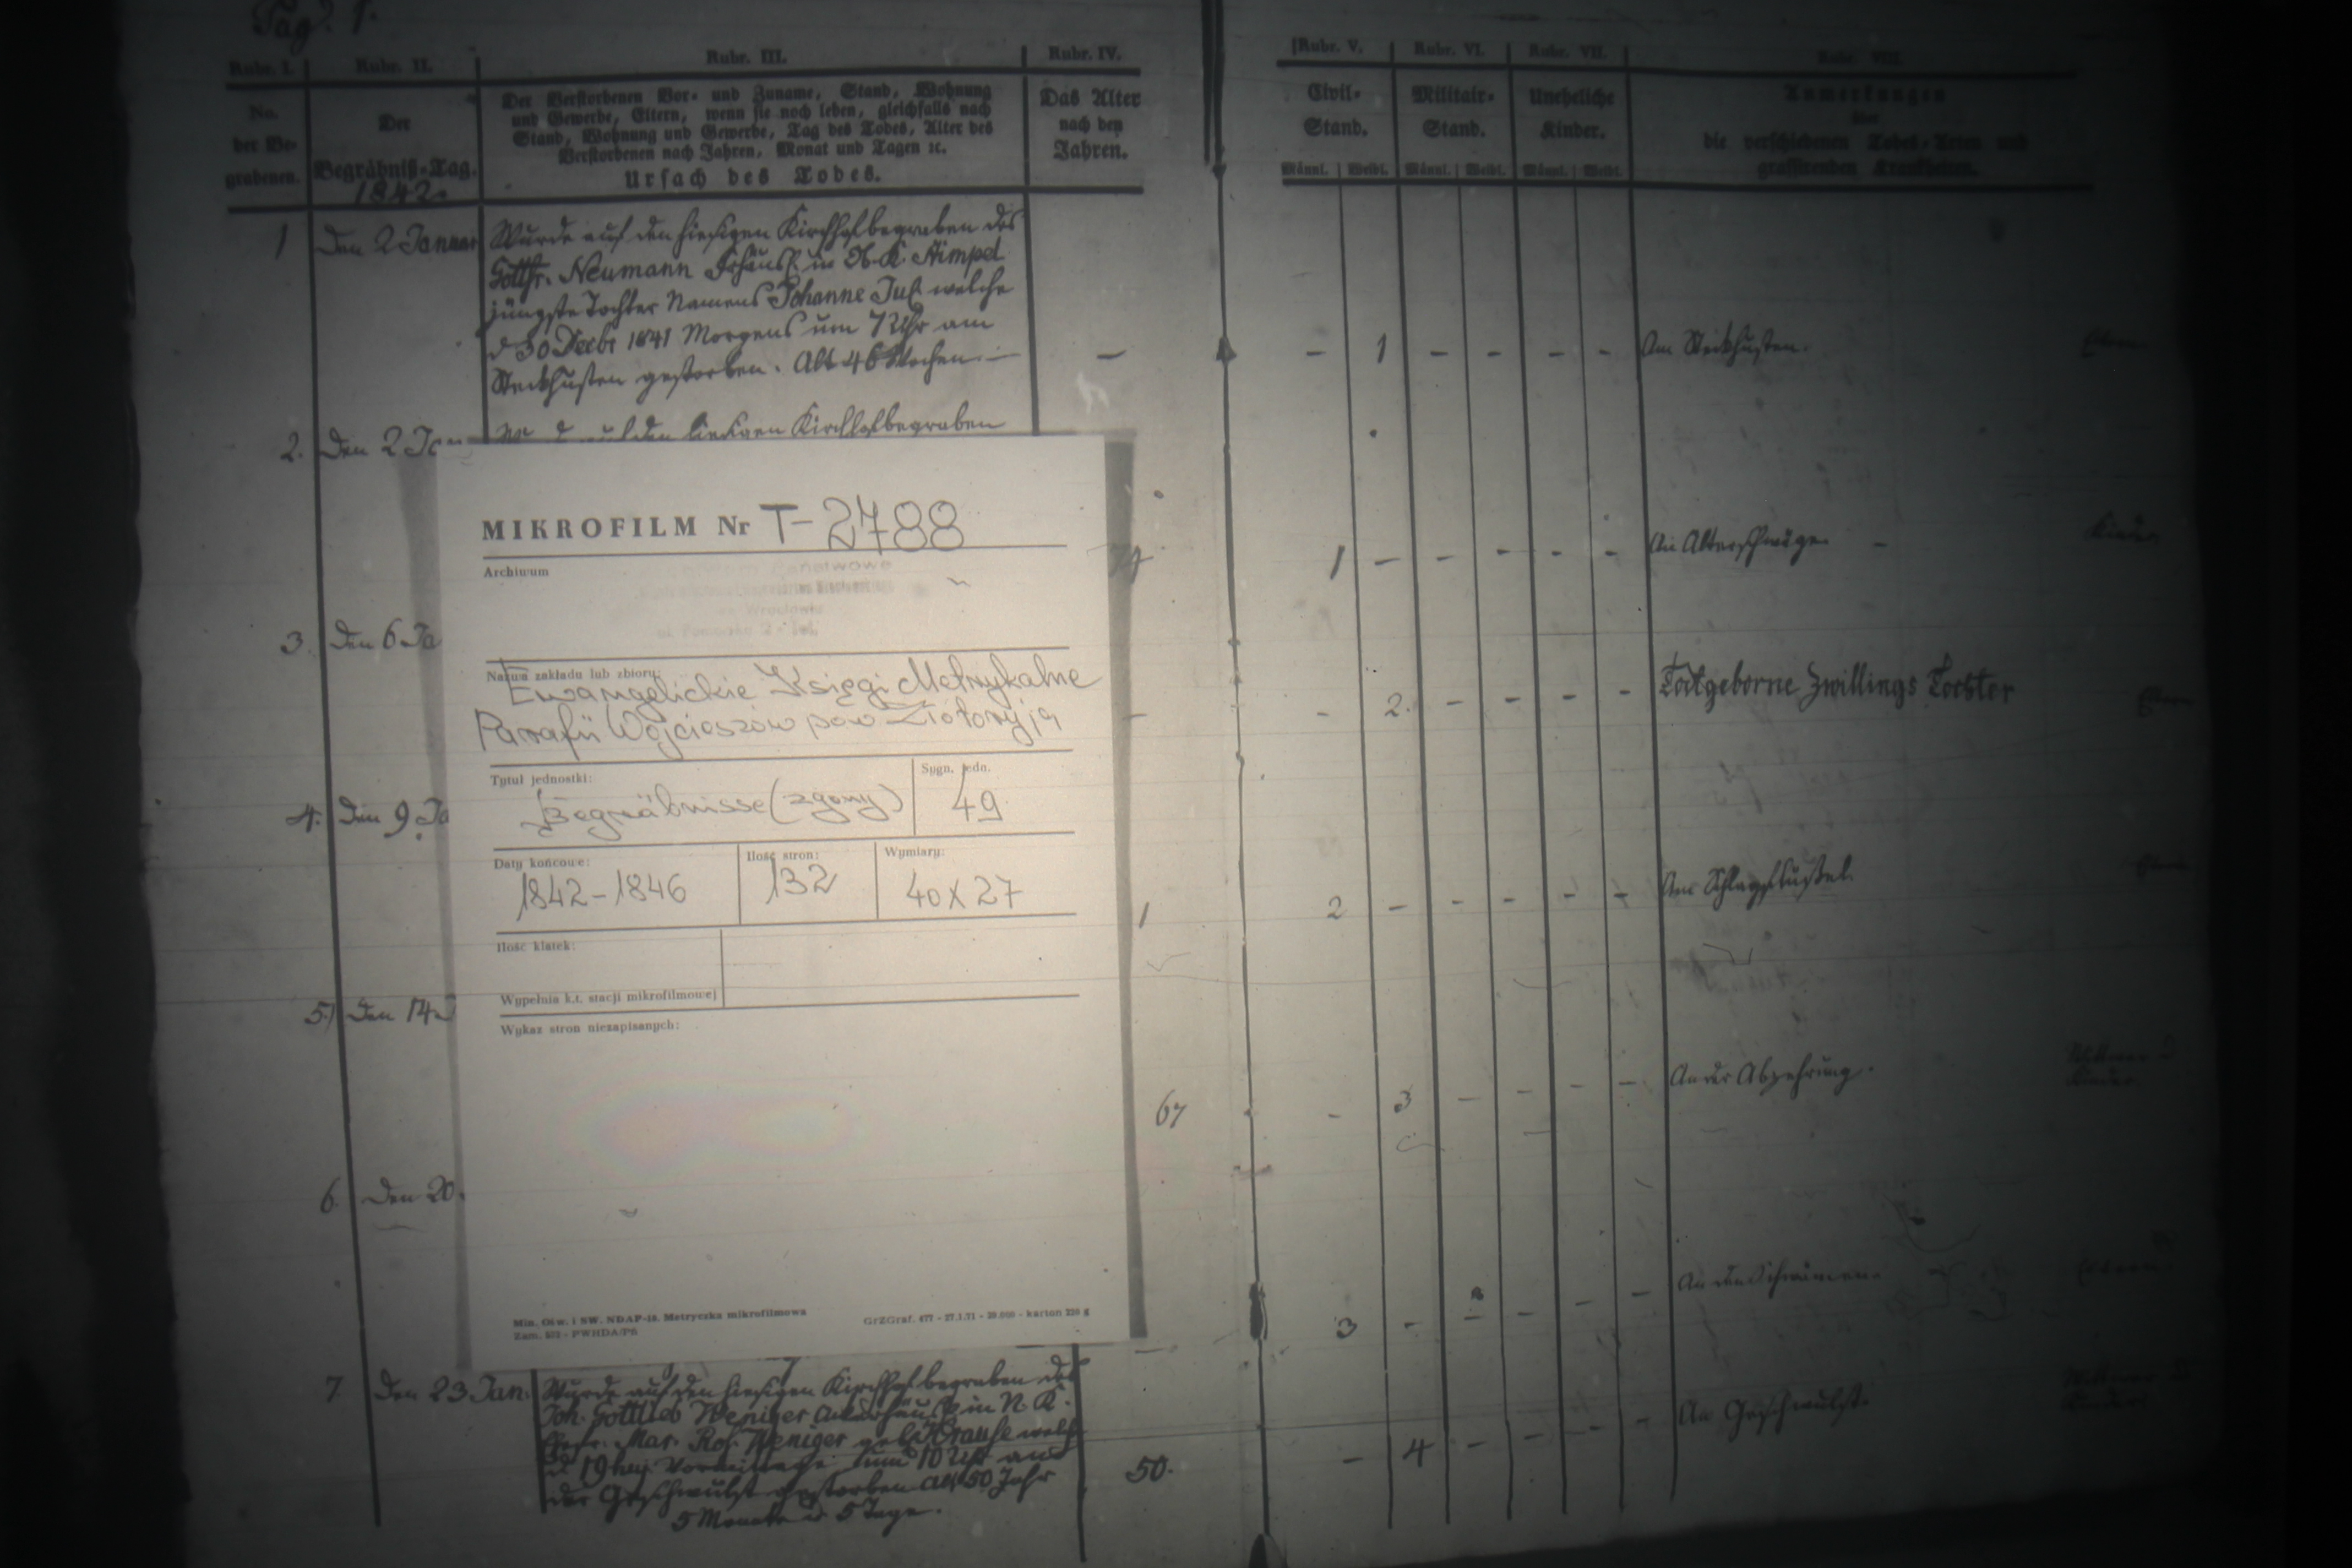 Pag. 1.
Rubr. I.
Rubr. II.
Rubr. III.
Rubr. IV.
Rubr. V.
Rubr. VI.
Rubr. VII.
Rubr. VIII.
No.
der Be-
grabenen.
Der
Begräbniß-Tag.
1842.
Der Verstorbenen Vor- und Zuname, Stand, Wohnung
und Gewerbe, Eltern, wenn sie noch leben, gleichfalls nach
Stand, Wohnung und Gewerbe, Tag des Todes, Alter des
Verstorbenen nach Jahren, Monat und Tagen ꝛc.
Ursach des Todes.
Das Alter
nach den
Jahren.
Civil-
Stand.
Männl. Weibl.
Militair-
Stand.
Männl. Weibl.
Uneheliche
Kinder.
Männl. Weibl.
Anmerkungen
über
die verschiedenen Todes-Arten und
grassirenden Krankheiten.
1 Den 2 Januar
Wurde auf den hiesigen Kirchhof begraben des
Gottfr. Neumann in N. K.
jüngste Tochter Namens Johanne Jul. welche
d 30 Decbr 1841 Morgens um 7 Uhr am
Steckhusten gestorben. Alt 46 Wochen. —
— – 1 – – – – Am Steckhusten.
2. Den 2 Jan
hiesigen Kirchhof begraben
74 1 – – – – – An Alterschwäge –
3. Den 6 Ja
– – 2. – – – – Todtgeborne Zwillings Tochter
4. Den 9 Ja
1 2 – – – – – Am Schlagflußel.
5. Den 14
67 – 3 – – – – An der Abzehrung.
6. Den 20.
3 – – – – – An den
7 Den 23 Jan.
Wurde auf den hiesigen Kirchhof begraben des
Joh. Gottlieb Weniger in N. K.
Mar. Ros. Weniger geb. Krause welche
d 19 hej. Vormittags um 10 Uhr an
der Geschwulst gestorben alt 50 Jahr
5 Monate u 5 Tage.
50. – 4 – – – – An Geschwulst.
MIKROFILM Nr T-2788
Archiwum
Państwowe
Nazwa zakładu lub zbioru:
Ewangelickie Księgi Metrykalne
Parafii Wojcieszów pow Złotoryja
Tytuł jednostki:
Begräbnisse (zgony)
Sygn. jedn.
49
Daty końcowe:
1842-1846
Ilość stron:
132
Wymiary:
40 x 27
Ilość klatek:
Wypełnia k.t. stacji mikrofilmowej
Wykaz stron niezapisanych:
Min. Ośw. i SW. NDAP-18. Metryczka mikrofilmowa
GrZGraf. 477 - 27.1.71 - 20.000 - karton 220 g